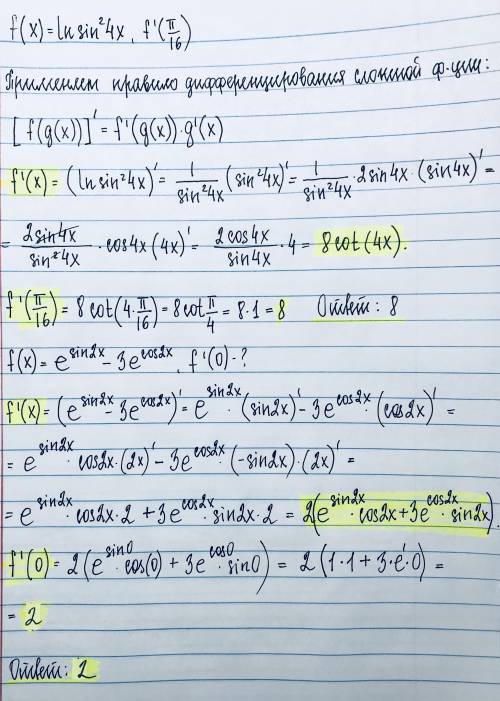 f(x) = ln sin²4x, f'(π/16)
Применяем правило дифференцирования сложной ф-ции:
[f(g(x))]' = f'(g(x))·g'(x)
f'(x) = (ln sin²4x)' = 1/sin²4x (sin²4x)' = 1/sin²4x · 2sin4x·(sin4x)' =
= 2sin4x/sin²4x · cos4x(4x)' = 2cos4x/sin4x · 4 = 8cot(4x).
f'(π/16) = 8cot(4·π/16) = 8cot π/4 = 8·1 = 8 Ответ: 8
f(x) = e^sin2x − 3e^cos2x, f'(0) - ?
f'(x) = (e^sin2x − 3e^cos2x)' = e^sin2x · (sin2x)' − 3e^cos2x · (cos2x)' =
= e^sin2x · cos2x·(2x)' − 3e^cos2x · (−sin2x)·(2x)' =
= e^sin2x · cos2x·2 + 3e^cos2x · sin2x·2 = 2(e^sin2x · cos2x + 3e^cos2x · sin2x).
f'(0) = 2(e^sin0 · cos(0) + 3e^cos0 · sin0) = 2(1·1 + 3·e¹·0) =
= 2
Ответ: 2